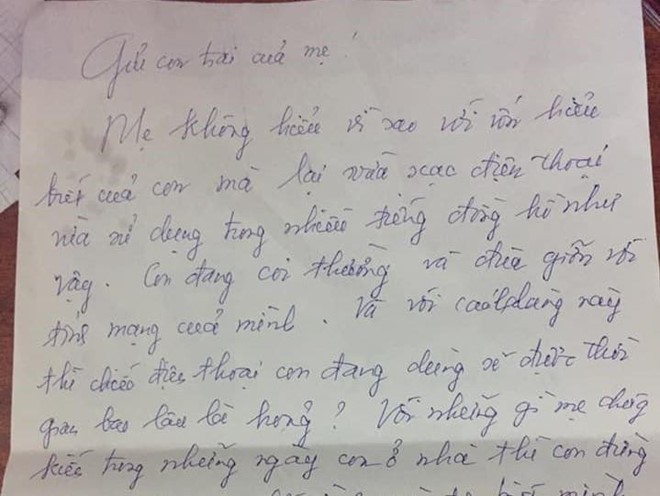 Gửi con trai của mẹ!
Mẹ không hiểu vì sao với vốn hiểu
biết của con mà lại vừa xạc điện thoại
vừa sử dụng trong nhiều tiếng đồng hồ như
vậy. Con đang coi thường và đùa giỡn với
tính mạng của mình. Và với cách dùng này
thì chiếc điện thoại con đang dùng sẽ được thời
gian bao lâu là hỏng? Với những gì mẹ chứng
kiến trong những ngày con ở nhà thì con đừng